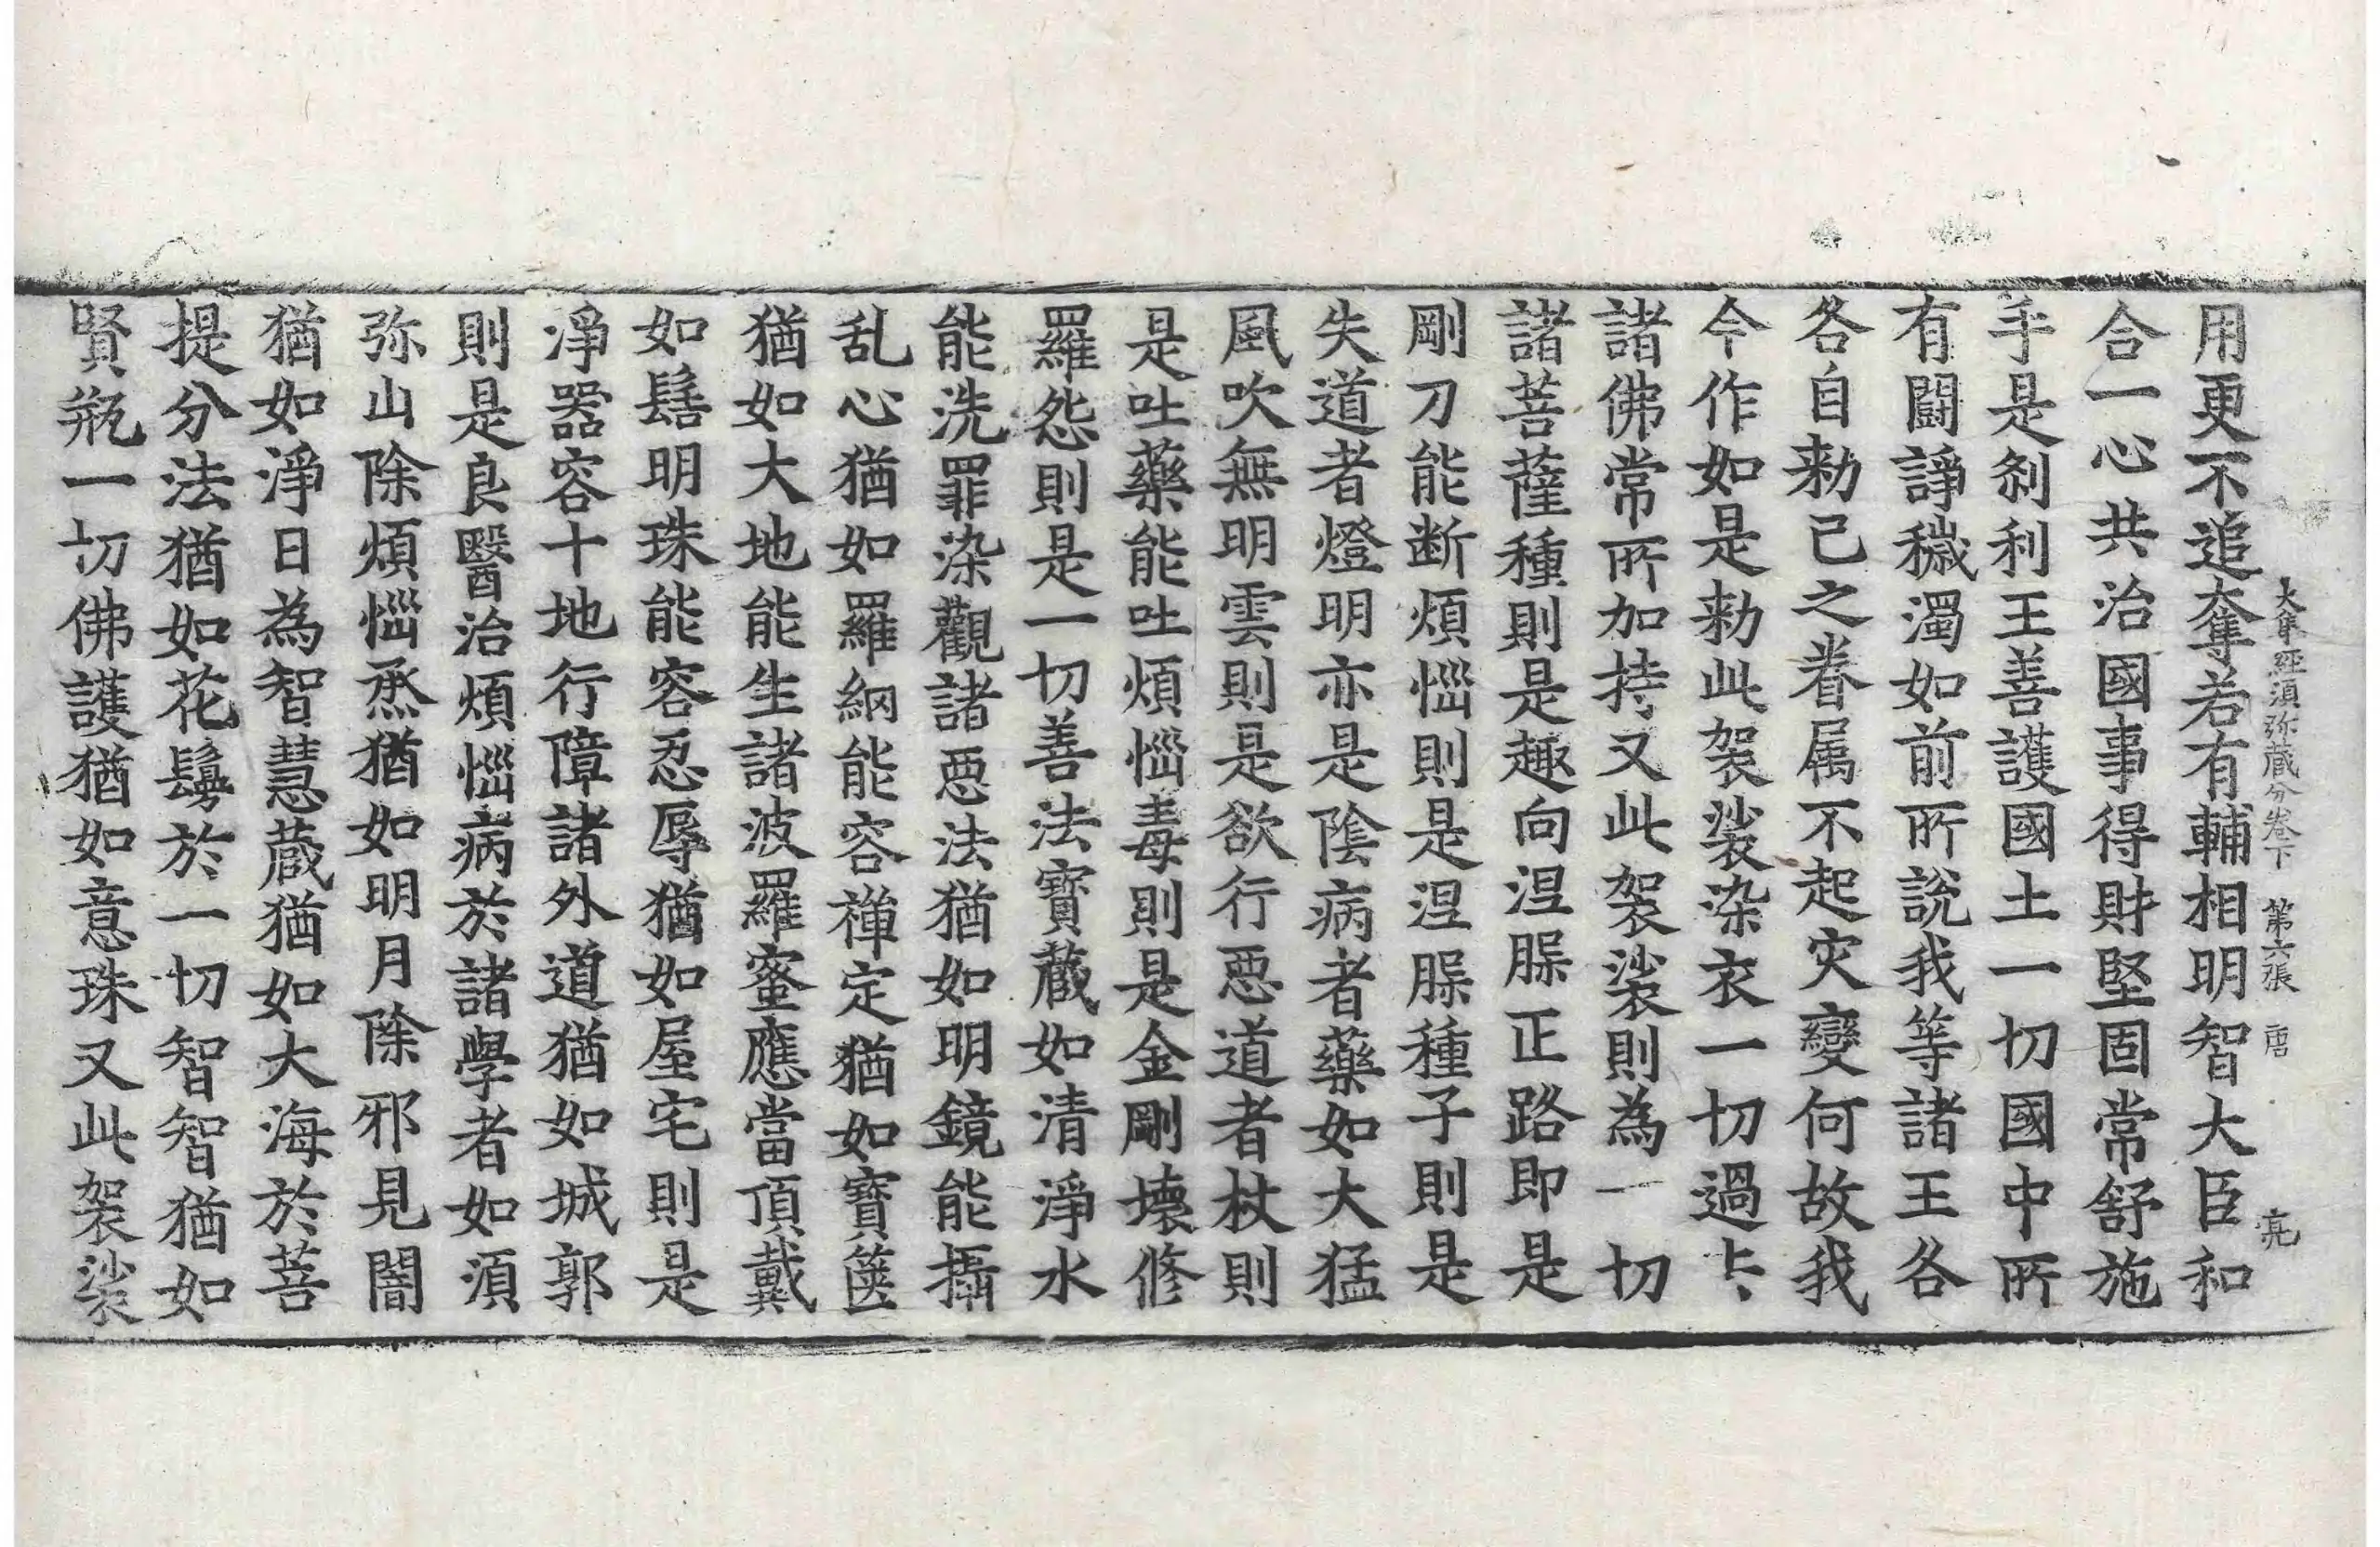 大集經須弥藏分卷下 第六張 唐 亮
用更不追奪若有輔相明智大臣和
合一心共治國事得財堅固常舒施
手是刹利王善護國土一切國中所
有鬪諍穢濁如前所說我等諸王各
各自勑己之眷属不起灾變何故我
今作如是勑此袈裟染衣一切過去
諸佛常所加持又此袈裟則為一切
諸菩薩種則是趣向涅槃正路即是
剛刀能断煩惱則是涅槃種子則是
失道者燈明亦是陰病者藥如大猛
風吹無明雲則是欲行惡道者杖則
是吐藥能吐煩惱毒則是金剛壞修
羅怨則是一切善法寶藏如清淨水
能洗罪染觀諸惡法猶如明鏡能攝
乱心猶如羅網能容禪定猶如寶篋
猶如大地能生諸波羅蜜應當頂戴
如髻明珠能容忍辱猶如屋宅則是
淨器容十地行障諸外道猶如城郭
則是良醫治煩惱病於諸學者如須
弥山除煩惱烝猶如明月除邪見闇
猶如淨日為智慧藏猶如大海於菩
提分法猶如花鬘於一切智智猶如
賢瓶一切佛護猶如意珠又此袈裟